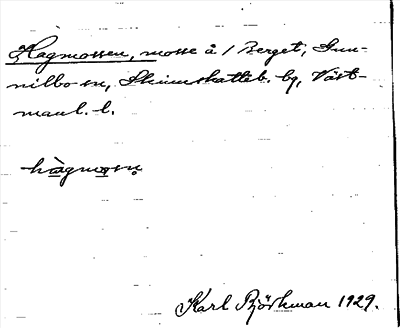 Hagmossen, mosse å 1 Berget, Gun-
nilbo sn, Skinnskatteb. bg, Väst-
manl. l.
hàgmosn̥
Karl Björkman 1929.